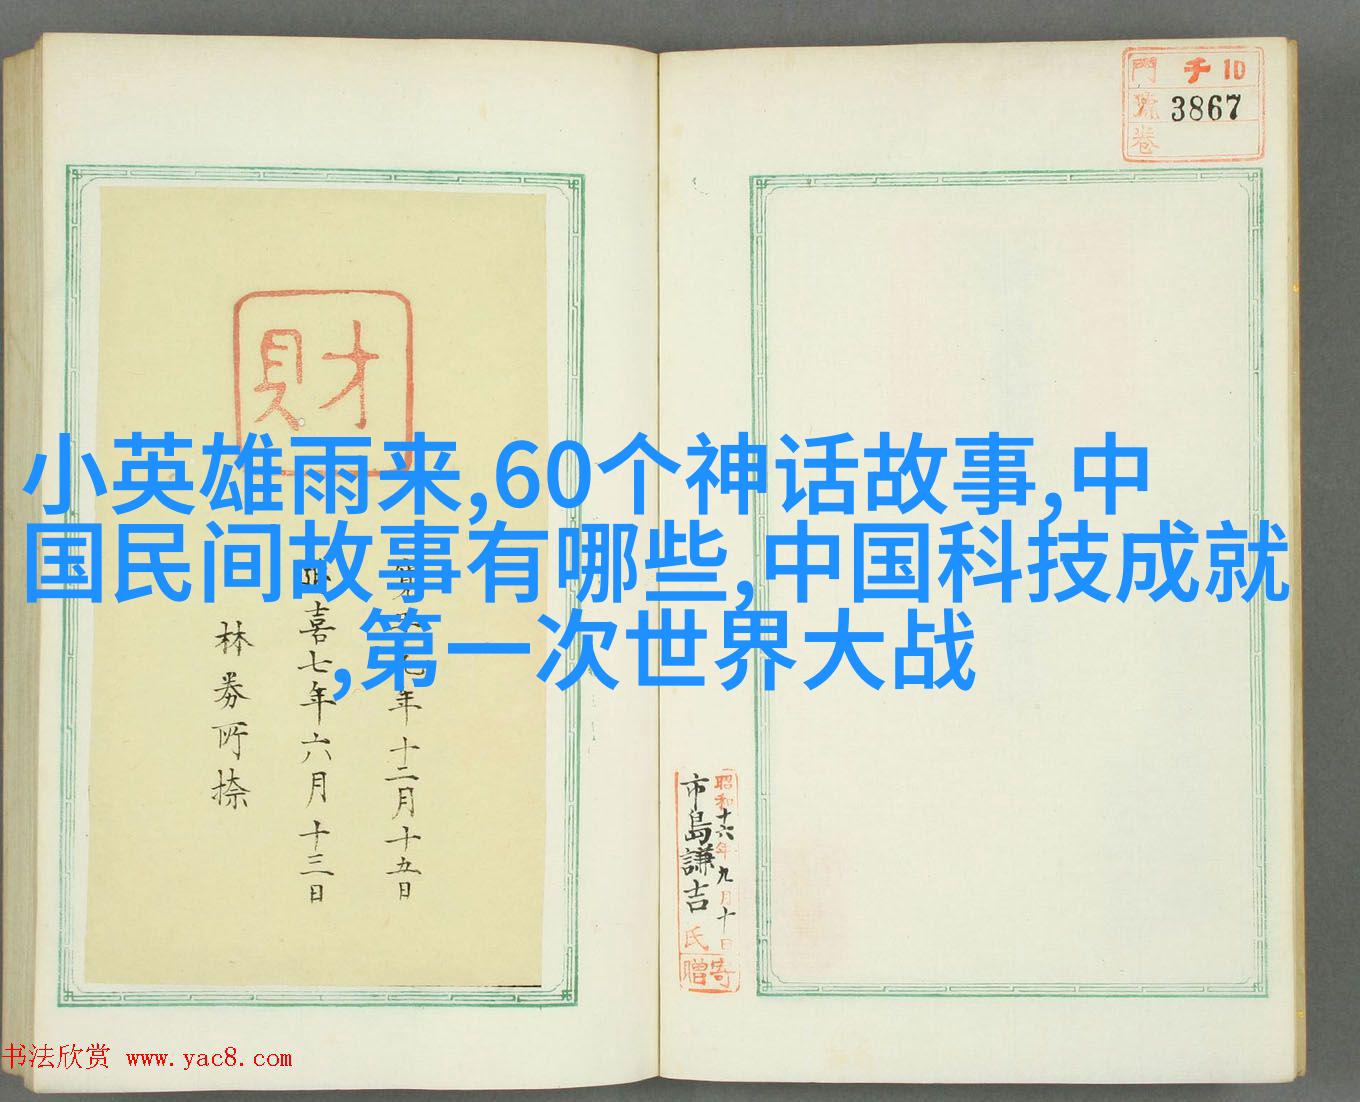 門 千 10
號 3867
卷
財
小英雄雨来,60个神话故事,中
国民间故事有哪些,中国科技成就
,第一次世界大战
年十二月十五日
喜七年六月十三日
林券所捺
昭和十六年九月十日
市島謙吉氏
寄贈
书法欣赏 www.yac8.com